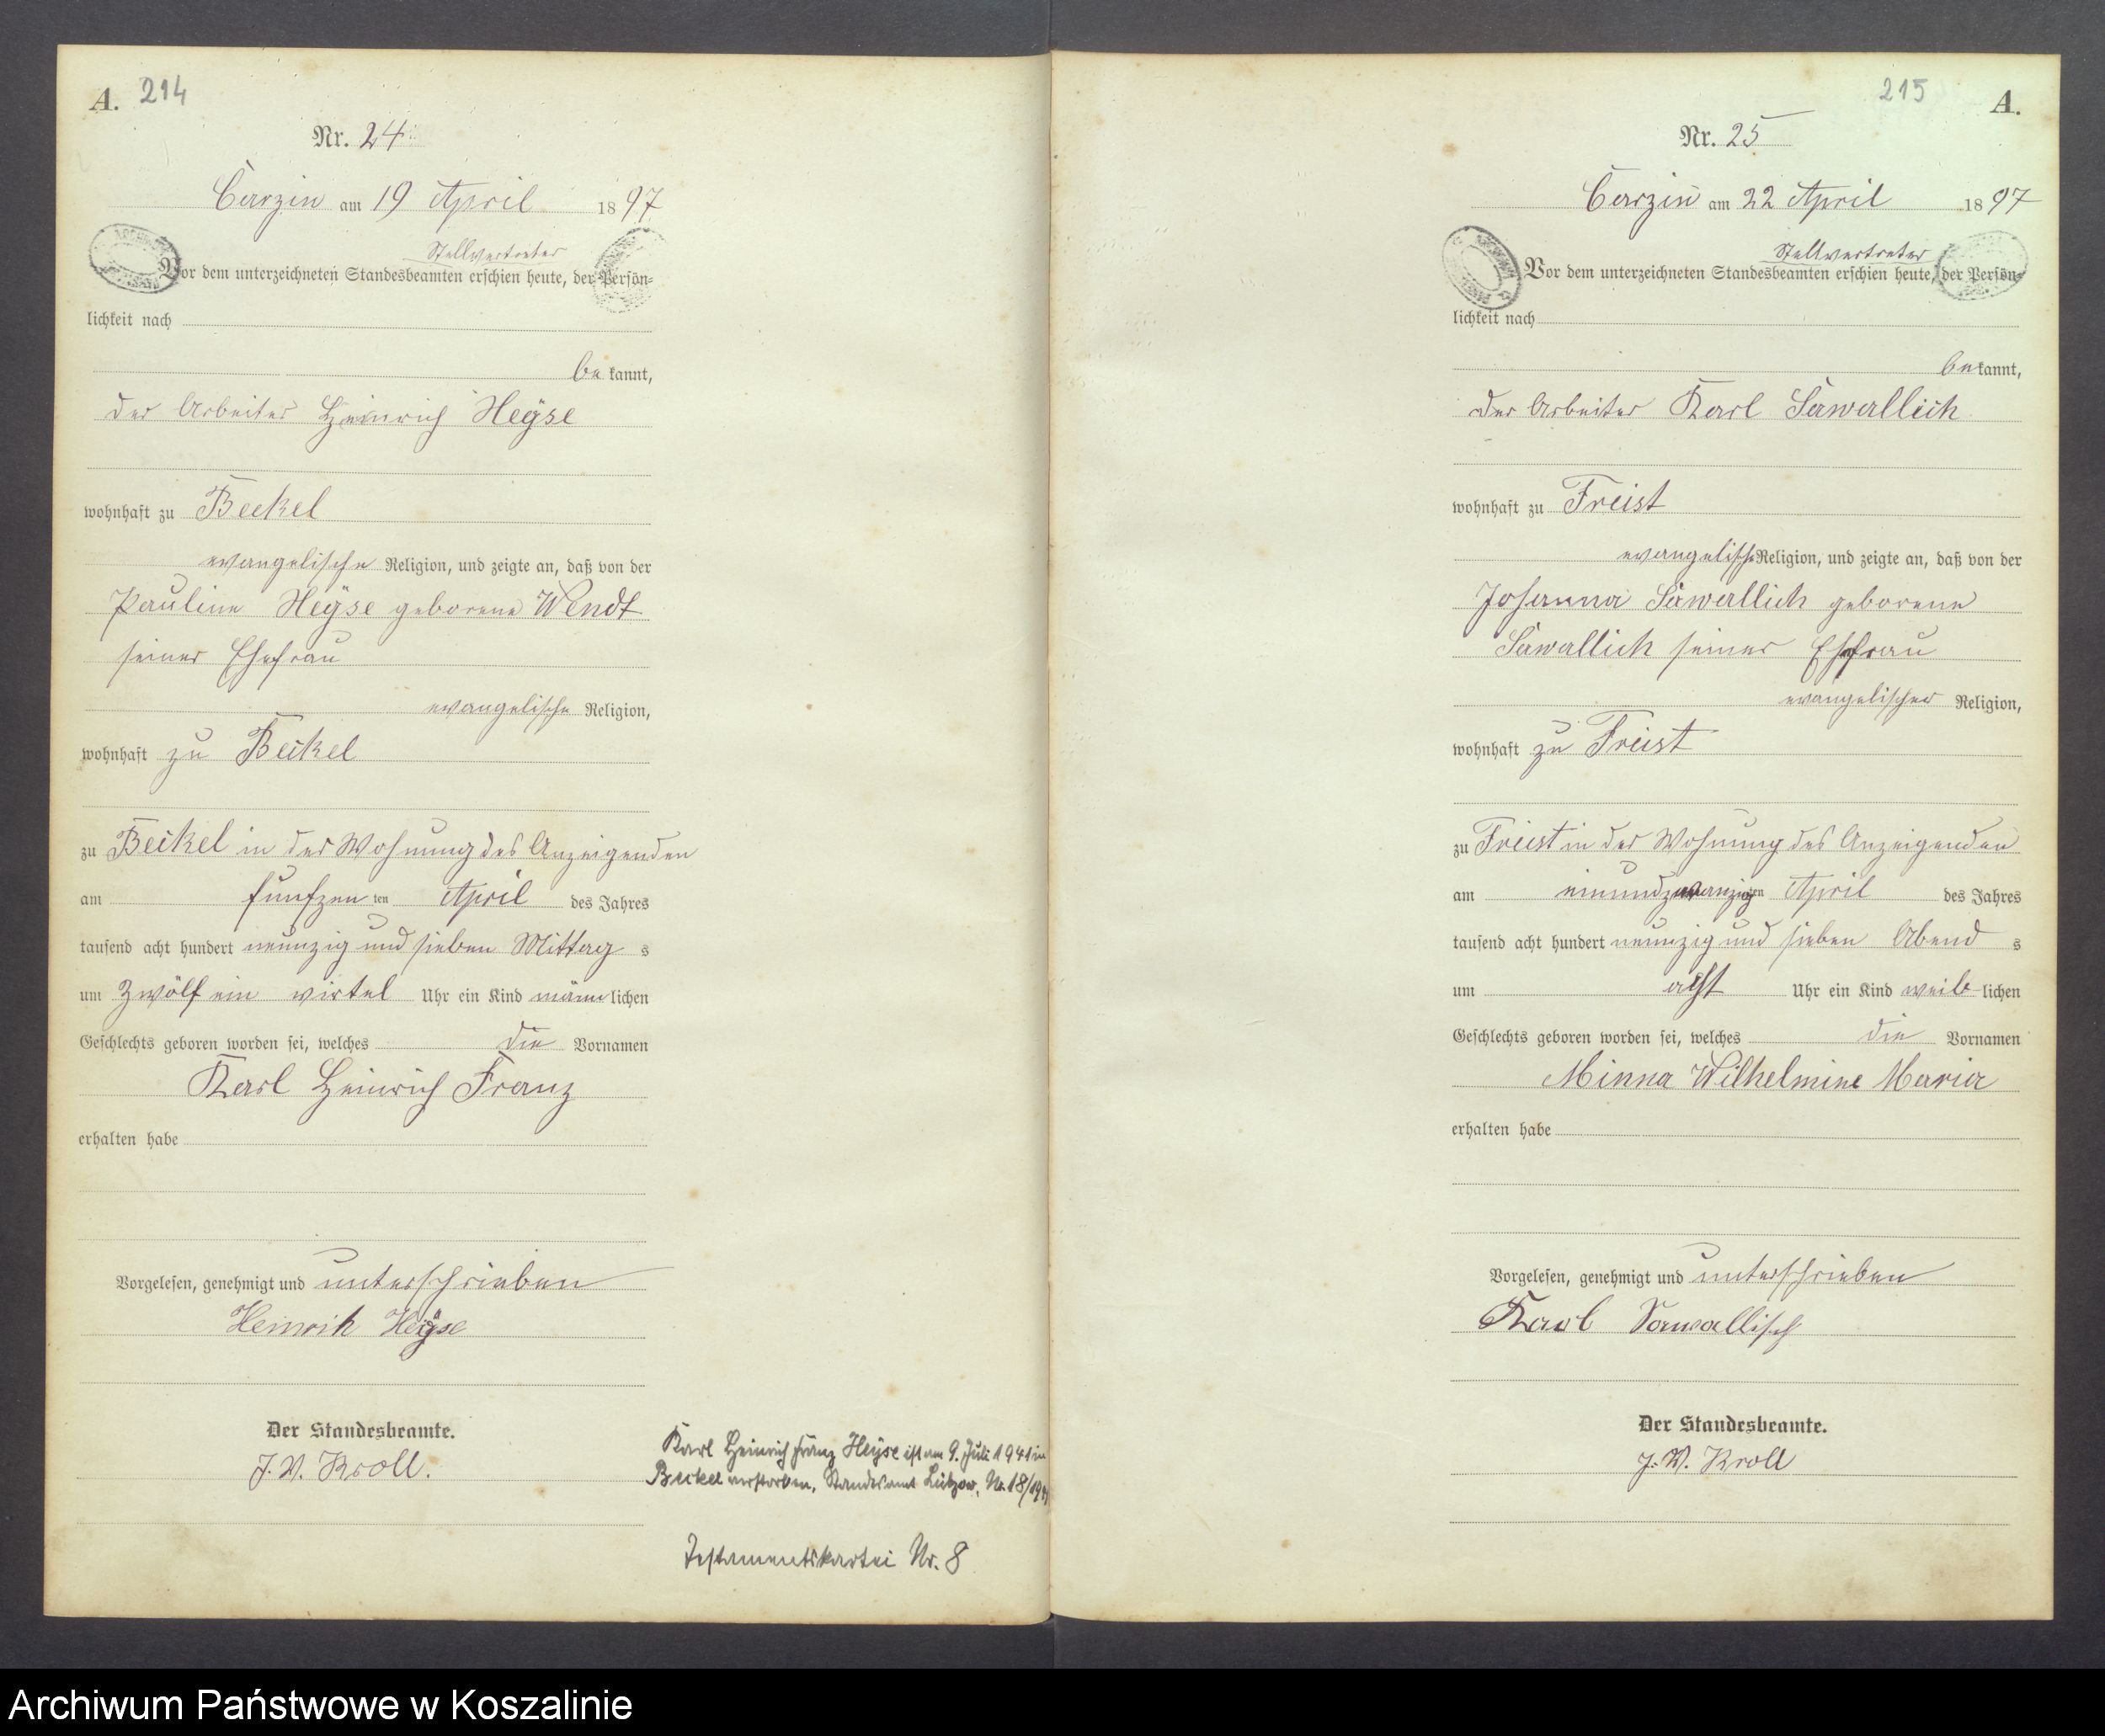 A. 214
Nr. 24
Carzin am 19 April 1897
Stellvertreter
Vor dem unterzeichneten Standesbeamten erschien heute, der Persön-
lichkeit nach
be kannt,
der Arbeiter Heinrich Heÿse
wohnhaft zu Beckel
evangelische Religion, und zeigte an, daß von der
Pauline Heÿse geborene Wendt
seiner Ehefrau
evangelische Religion,
wohnhaft zu Beckel
zu Beckel in der Wohnung des Anzeigenden
am funfzen ten April des Jahres
tausend acht hundert neunzig und sieben Mittag s
um Zwölf ein virtel Uhr ein Kind männlichen
Geschlechts geboren worden sei, welches die Vornamen
Karl Heinrich Franz
erhalten habe
Vorgelesen, genehmigt und unterschrieben
Heinrih Heÿse
Der Standesbeamte.
J. V. Kroll.
Karl Heinrich Franz Heyse ist am 9. Juli 1941 in
Beckel verstorben. Standesamt Lützow, Nr. 18/1941
Testamentskartei Nr. 8
215 A.
Nr. 25
Carzin am 22 April 1897
Stellvertreter
Vor dem unterzeichneten Standesbeamten erschien heute, der Persön-
lichkeit nach
bekannt,
der Arbeiter Karl Sawallich
wohnhaft zu Freist
evangelische Religion, und zeigte an, daß von der
Johanna Sawallich geborene
Sawallich seiner Ehefrau
evangelischer Religion,
wohnhaft zu Freist
zu Freist in der Wohnung des Anzeigenden
am einundzwanzigten April des Jahres
tausend acht hundert neunzig und sieben Abend s
um acht Uhr ein Kind weiblichen
Geschlechts geboren worden sei, welches die Vornamen
Minna Wilhelmine Maria
erhalten habe
Vorgelesen, genehmigt und unterschrieben
Karl Sawallisch
Der Standesbeamte.
J. V. Kroll
Archiwum Państwowe w Koszalinie